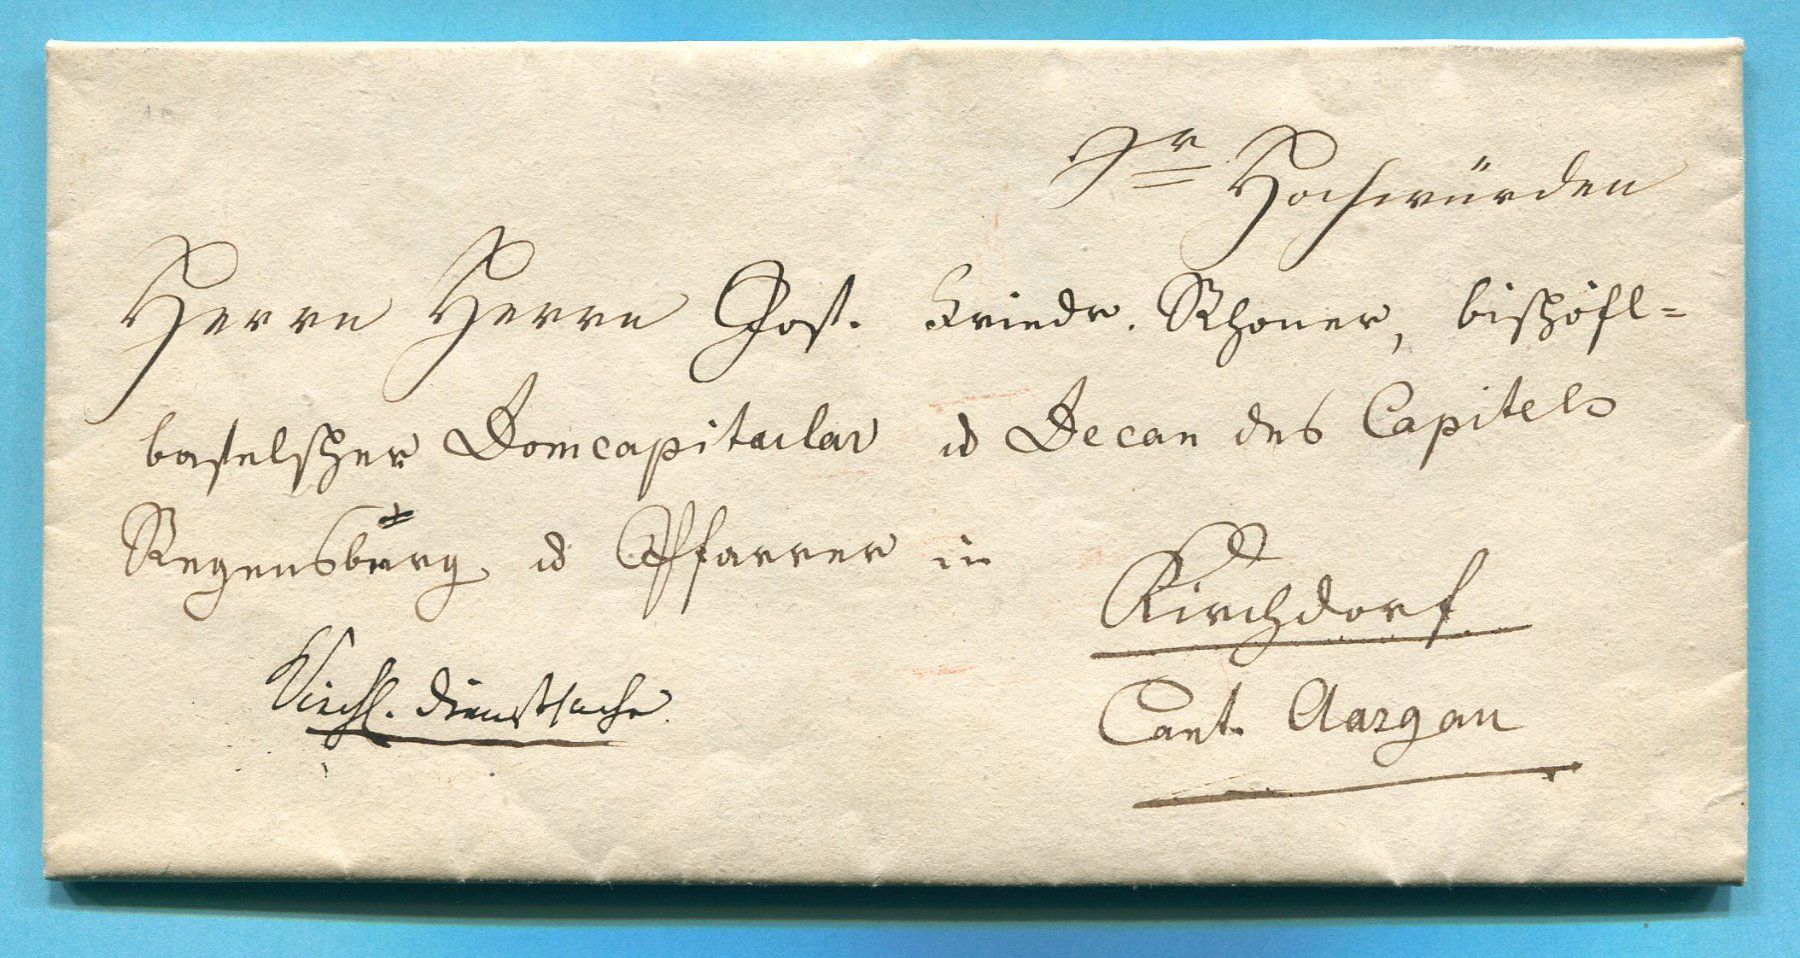 Sr Hochwürden
Herrn Herrn Jos. Friedr. Rhoner, bischöfl=
baselscher Domcapitular u Decan des Capitels
Regensburg, u Pfarrer in
Kirchdorf
Kirchl. Dienstsache.
Cant. Aargau